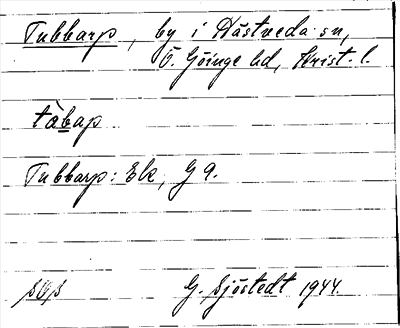 Tubbarp, by i Hästveda sn,
Ö. Göinge hd, Krist. l.
tàbap
Tubbarp: Ek, G 9.
G. Sjöstedt 1944.